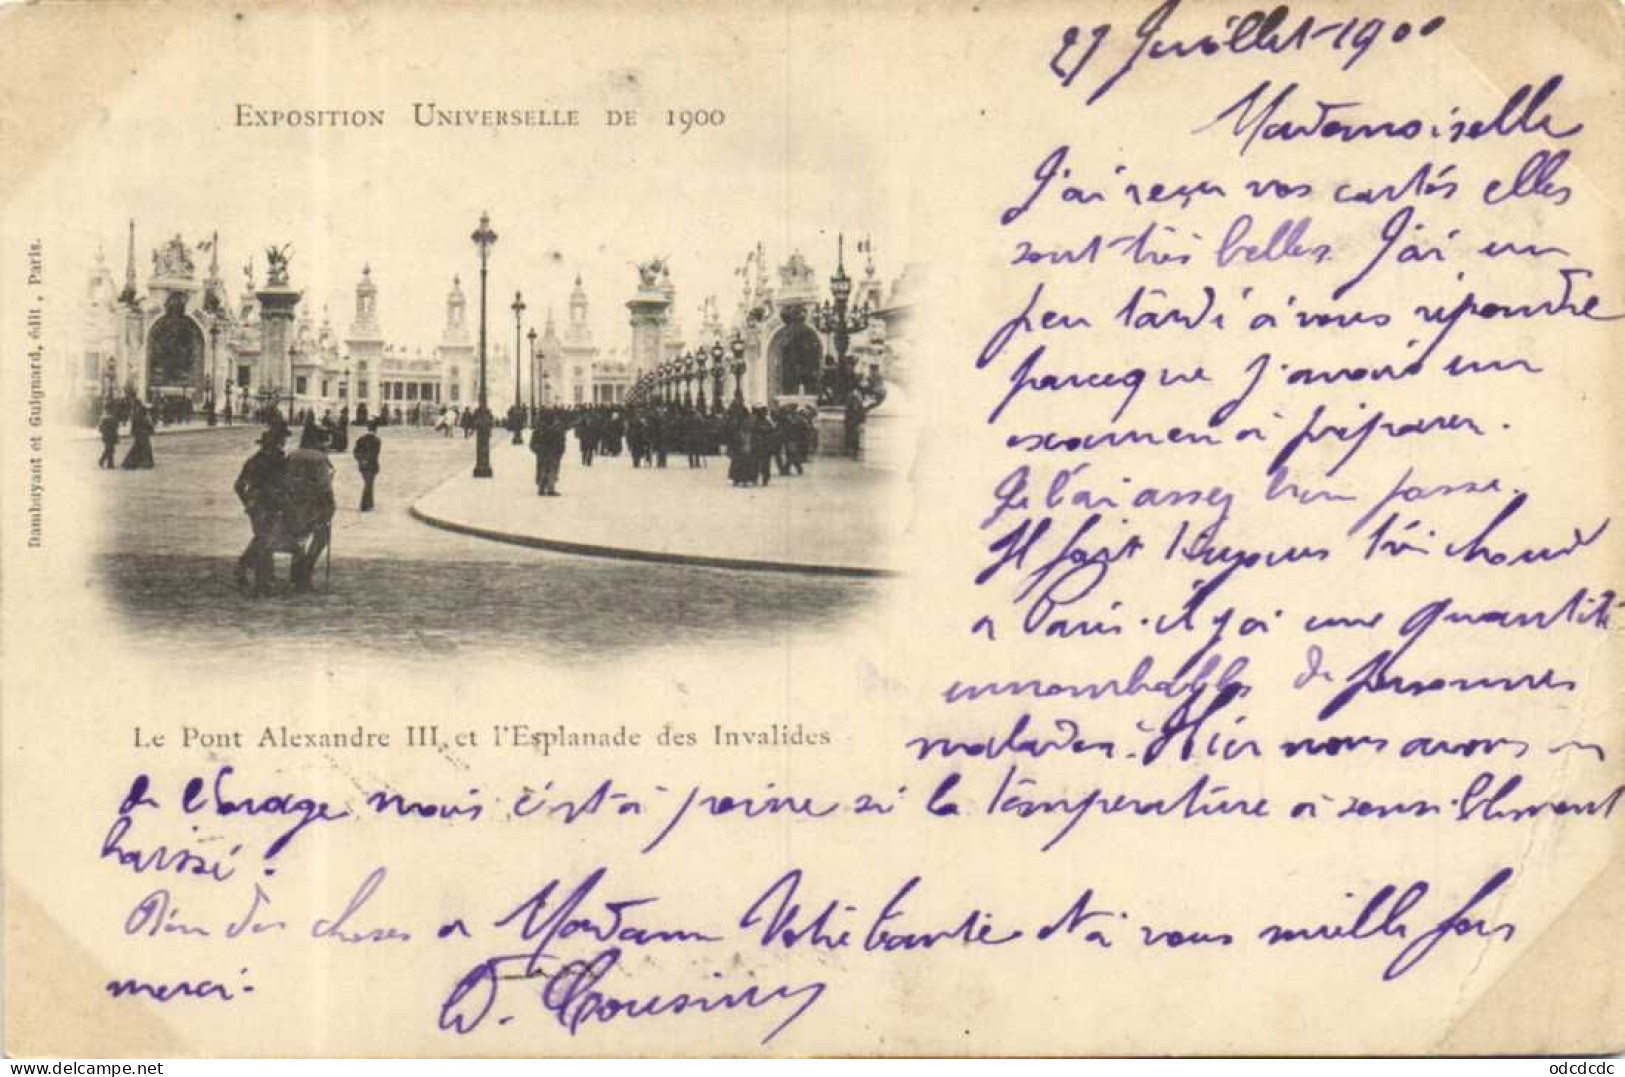 27 Juillet 1900
EXPOSITION UNIVERSELLE DE 1900
Mademoiselle
J'ai reçu vos cartes elles
sont très belles. J'ai un
peu tardé à vous répondre
parceque j'avais un
examen à préparer.
Je l'ai assez bien passé.
Il fait toujours très chaud
a Paris. il y a une quantité
innombrables de personnes
malades. Hier nous avons eu
de l'orage mais c'est à peine si la température a sensiblement
baissé.
Bien des choses a Madame Votre tante et à vous mille fois
merci.
Dambuyant et Guignard, édit, Paris.
Le Pont Alexandre III, et l'Esplanade des Invalides
delcampe.net
odcdcdc